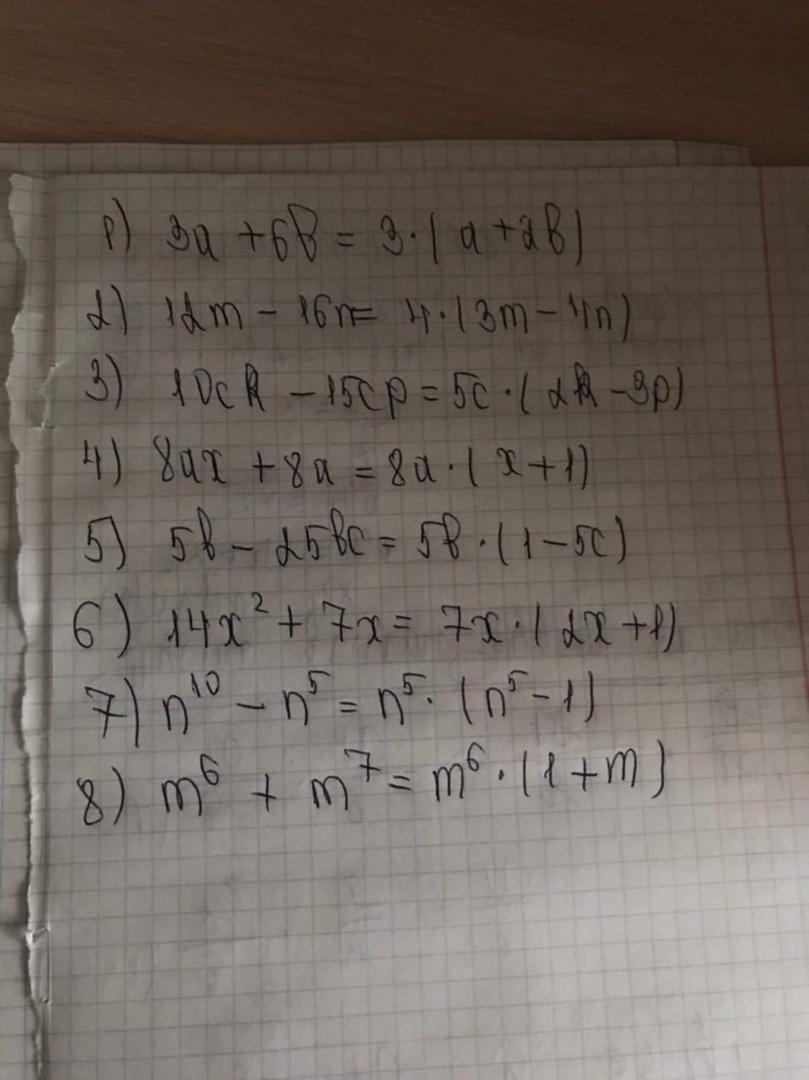 1) 3a + 6b = 3·(a+2b)
2) 12m - 16n = 4·(3m-4n)
3) 10ck - 15cp = 5c·(2k-3p)
4) 8ax + 8a = 8a·(x+1)
5) 5b - 25bc = 5b·(1-5c)
6) 14x² + 7x = 7x·(2x+1)
7) n¹⁰ - n⁵ = n⁵·(n⁵-1)
8) m⁶ + m⁷ = m⁶·(1+m)